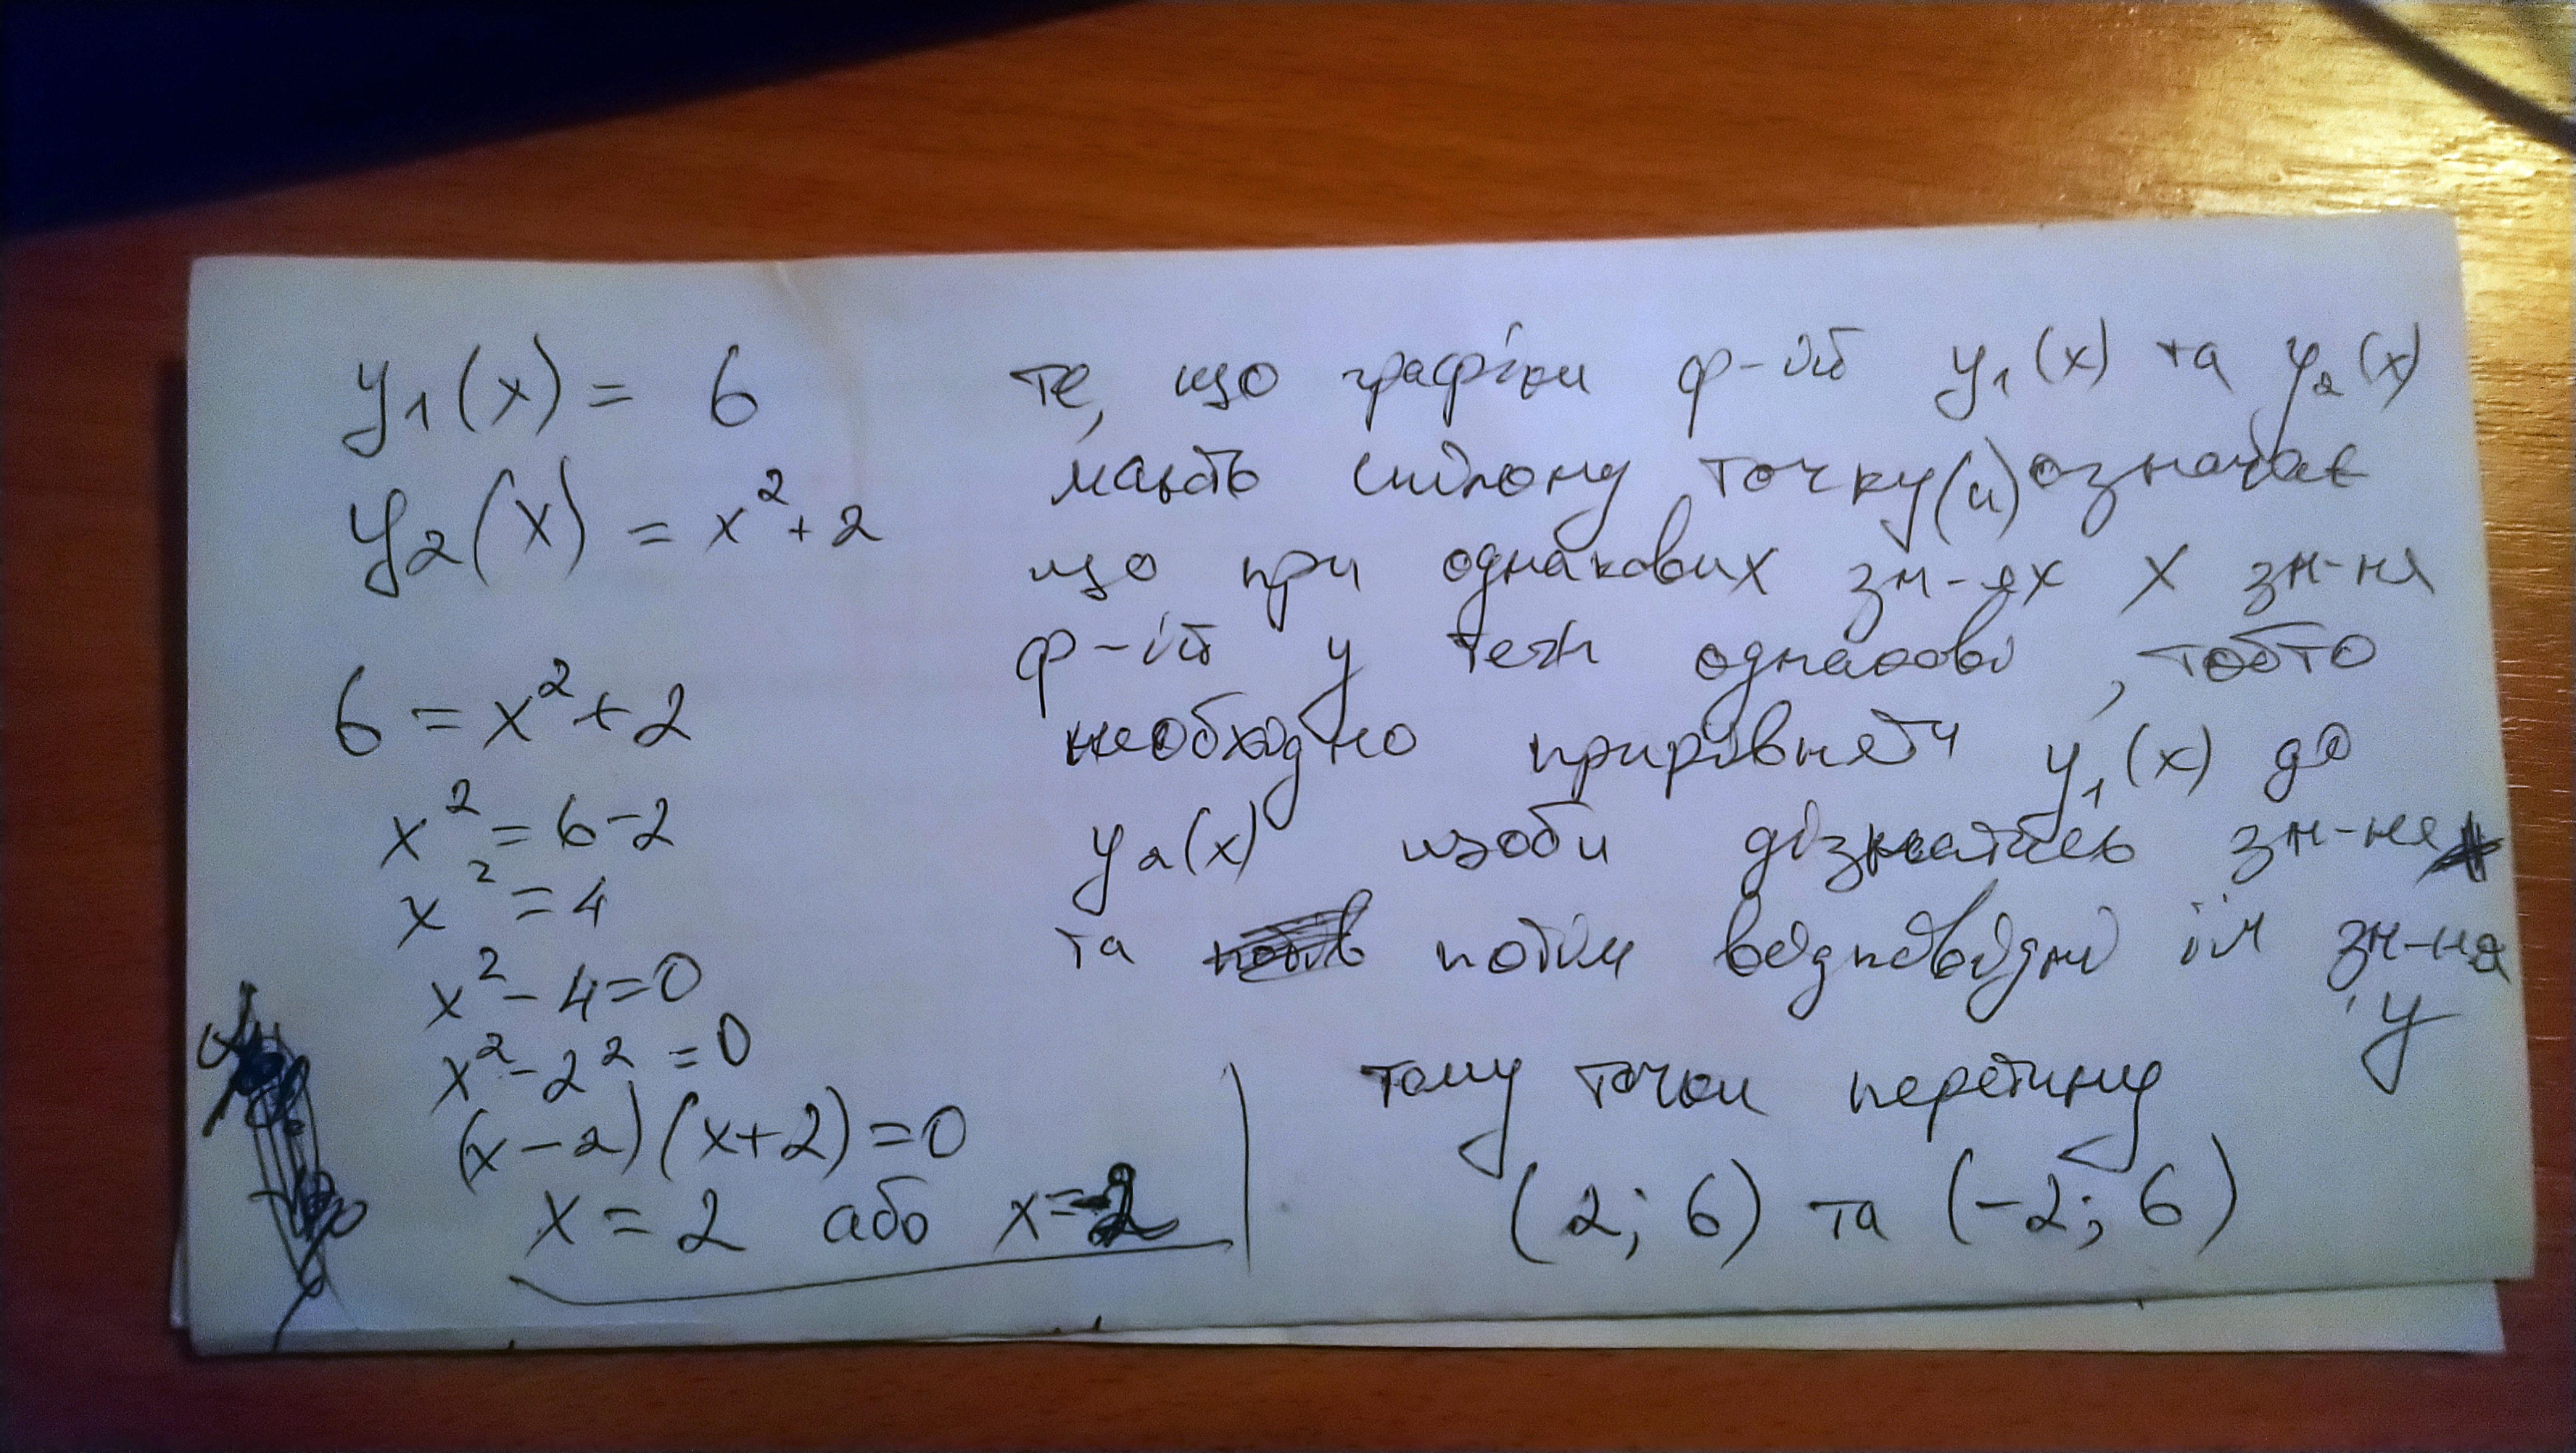 y₁(x) = 6
y₂(x) = x² + 2
6 = x² + 2
x² = 6 - 2
x² = 4
x² - 4 = 0
x² - 2² = 0
(x - 2)(x + 2) = 0
x = 2 або x = -2
те, що графіки ф-ій y₁(x) та y₂(x)
мають спільну точку(и) означає
що при однакових зн-ях x зн-ня
ф-ій y теж однакові, тобто
необхідно прирівняти y₁(x) до
y₂(x) щоби дізнатись зн-ня
та потім відповідні їм зн-ня
y
тому точки перетину
(2; 6) та (-2; 6)